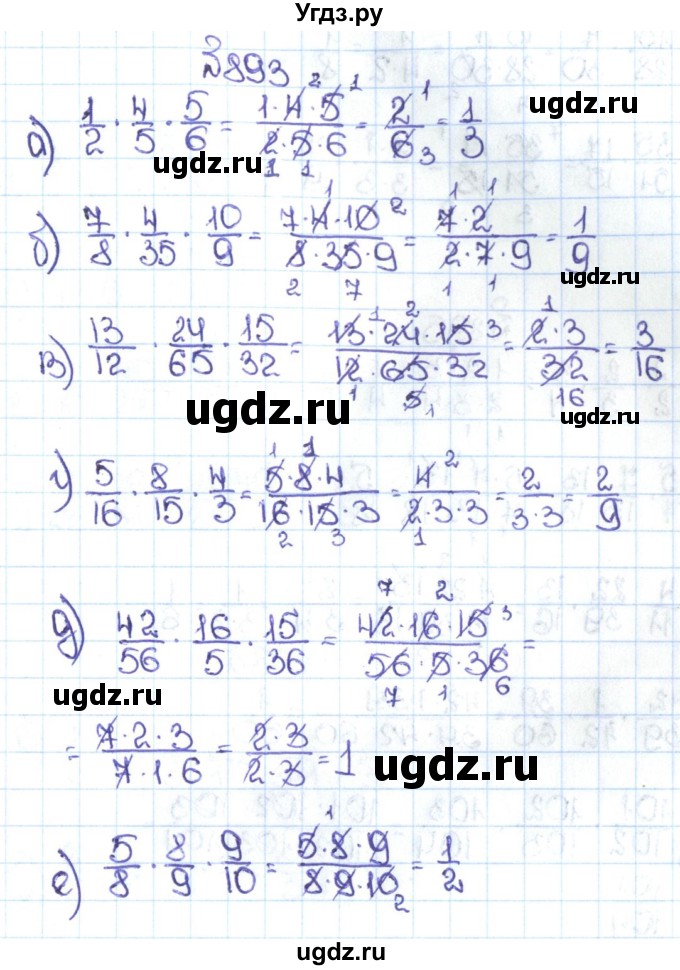 Угдз.ру
№893
а) 1/2 · 4/5 · 5/6 = 1·4·5/2·5·6 = 2/6 = 1/3
2 1 1 1 1 3
ugdz.ru
б) 7/8 · 4/35 · 10/9 = 7·4·10/8·35·9 = 7·2/2·7·9 = 1/9
1 2 2 7 1 1 1 1
ugdz.ru
в) 13/12 · 24/65 · 15/32 = 13·24·15/12·65·32 = 2·3/32 = 3/16
1 2 3 1 5 1 1 16
ugdz.ru
ugdz.ru
г) 5/16 · 8/15 · 4/3 = 5·8·4/16·15·3 = 4/2·3·3 = 2/3·3 = 2/9
1 1 2 3 2 1
д) 42/56 · 16/5 · 15/36 = 42·16·15/56·5·36 =
7 2 3 7 1 6
ugdz.ru
= 7·2·3/7·1·6 = 2·3/2·3 = 1
ugdz.ru
е) 5/8 · 8/9 · 9/10 = 5·8·9/8·9·10 = 1/2
1 2
ugdz.ru
ugdz.ru